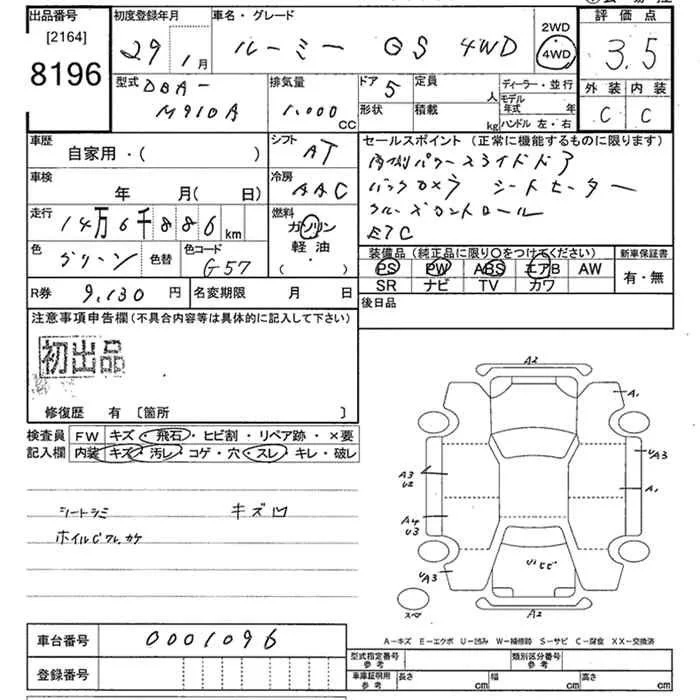 出品番号
[2164]
8196
初度登録年月
29年 1月
車名・グレード
ルーミー GS 4WD
2WD
4WD
評価点
3.5
外装 内装
C C
型式
DBA-
M910A
排気量
1.000
CC
ドア
5
定員
人
形状
積載
kg
ディーラー・並行
モデル年式 年
ハンドル 左・右
車歴
自家用・( )
シフト
AT
セールスポイント (正常に機能するものに限ります)
両側パワースライドドア
バックカメラ シートヒーター
クルーズコントロール
ETC
車検
年 月( 日)
冷房
AAC
走行
14万6千886km
燃料
ガソリン
軽油
( ・ )
色
グリーン
色替
色コード
G57
装備品 (純正品に限り○をつけてください)
PS PW ABS エアB AW
SR ナビ TV カワ
新車保証書
有・無
R券
9,130 円
名変期限 月 日
後日品
注意事項申告欄(不具合内容等は具体的に記入して下さい)
初出品
修復歴 有 〔箇所 〕
検査員
記入欄
FW キズ・飛石・ヒビ割・リペア跡・×要
内装 キズ・汚レ・コゲ・穴・スレ・キレ・破レ
シートシミ キズ凹
A2
A1
A3
U2
UA3
A1
A4
U3
UA3
A2
スペ
A-キズ E-エクボ U-凹み W-補修跡 S-サビ C-腐食 XX-交換済
車台番号
0001096
登録番号
型式指定番号
参考
類別区分番号
参考
車庫証明用
参考
長さ cm
幅 cm
高さ cm